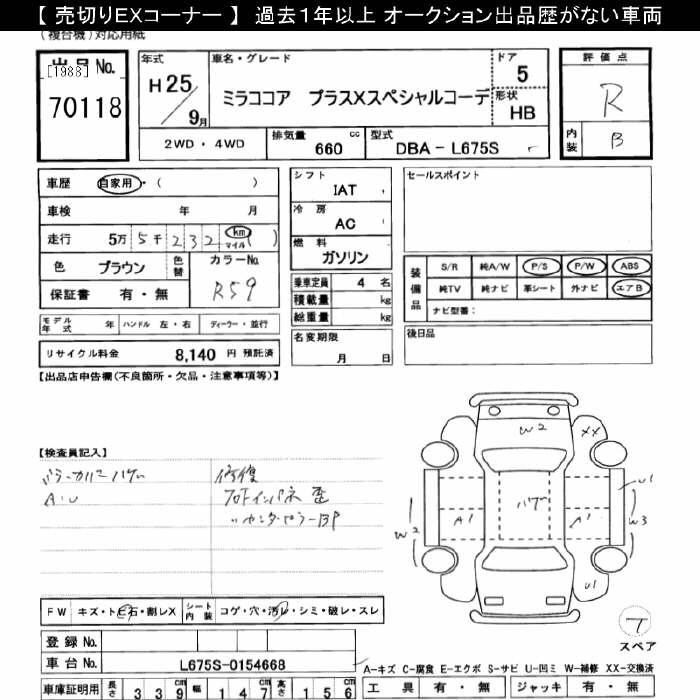 【 売切りEXコーナー 】 過去1年以上 オークション出品歴がない車両
(複合機)対応用紙
出品No.
[1988]
70118
年式
H25/9月
車名・グレード
ミラココア プラスXスペシャルコーデ
ドア
5
形状
HB
評価点
R
内装
B
2WD・4WD
排気量
660
cc
型式
DBA-L675S
車歴
自家用・( )
車検
年 月
走行
5万5千232
km
マイル
( )
色
ブラウン
色替
カラーNo.
R59
保証書
有・無
シフト
IAT
冷房
AC
燃料
ガソリン
乗車定員
4 名
積載量
kg
総重量
kg
セールスポイント
装備品
S/R 純A/W P/S P/W ABS
純TV 純ナビ 革シート 外ナビ エアB
ナビ型番:
モデル年式
年
ハンドル 左・右
ディーラー・並行
リサイクル料金
8,140 円 預託済
名変期限
月 日
後日品
【出品店申告欄(不良箇所・欠品・注意事項等)】
【検査員記入】
A・U
修復
W2
XX
U1
W2
A1
A1
W3
U1
FW
キズ・トビ石・割レX
シート内装
コゲ・穴・汚レ・シミ・破レ・スレ
T
スペア
登録No.
車台No.
L675S-0154668
A-キズ C-腐食 E-エクボ S-サビ U-凹ミ W-補修 XX-交換済
車庫証明用
長さ
339cm
幅
147cm
高さ
156cm
工具
有・無
ジャッキ
有・無